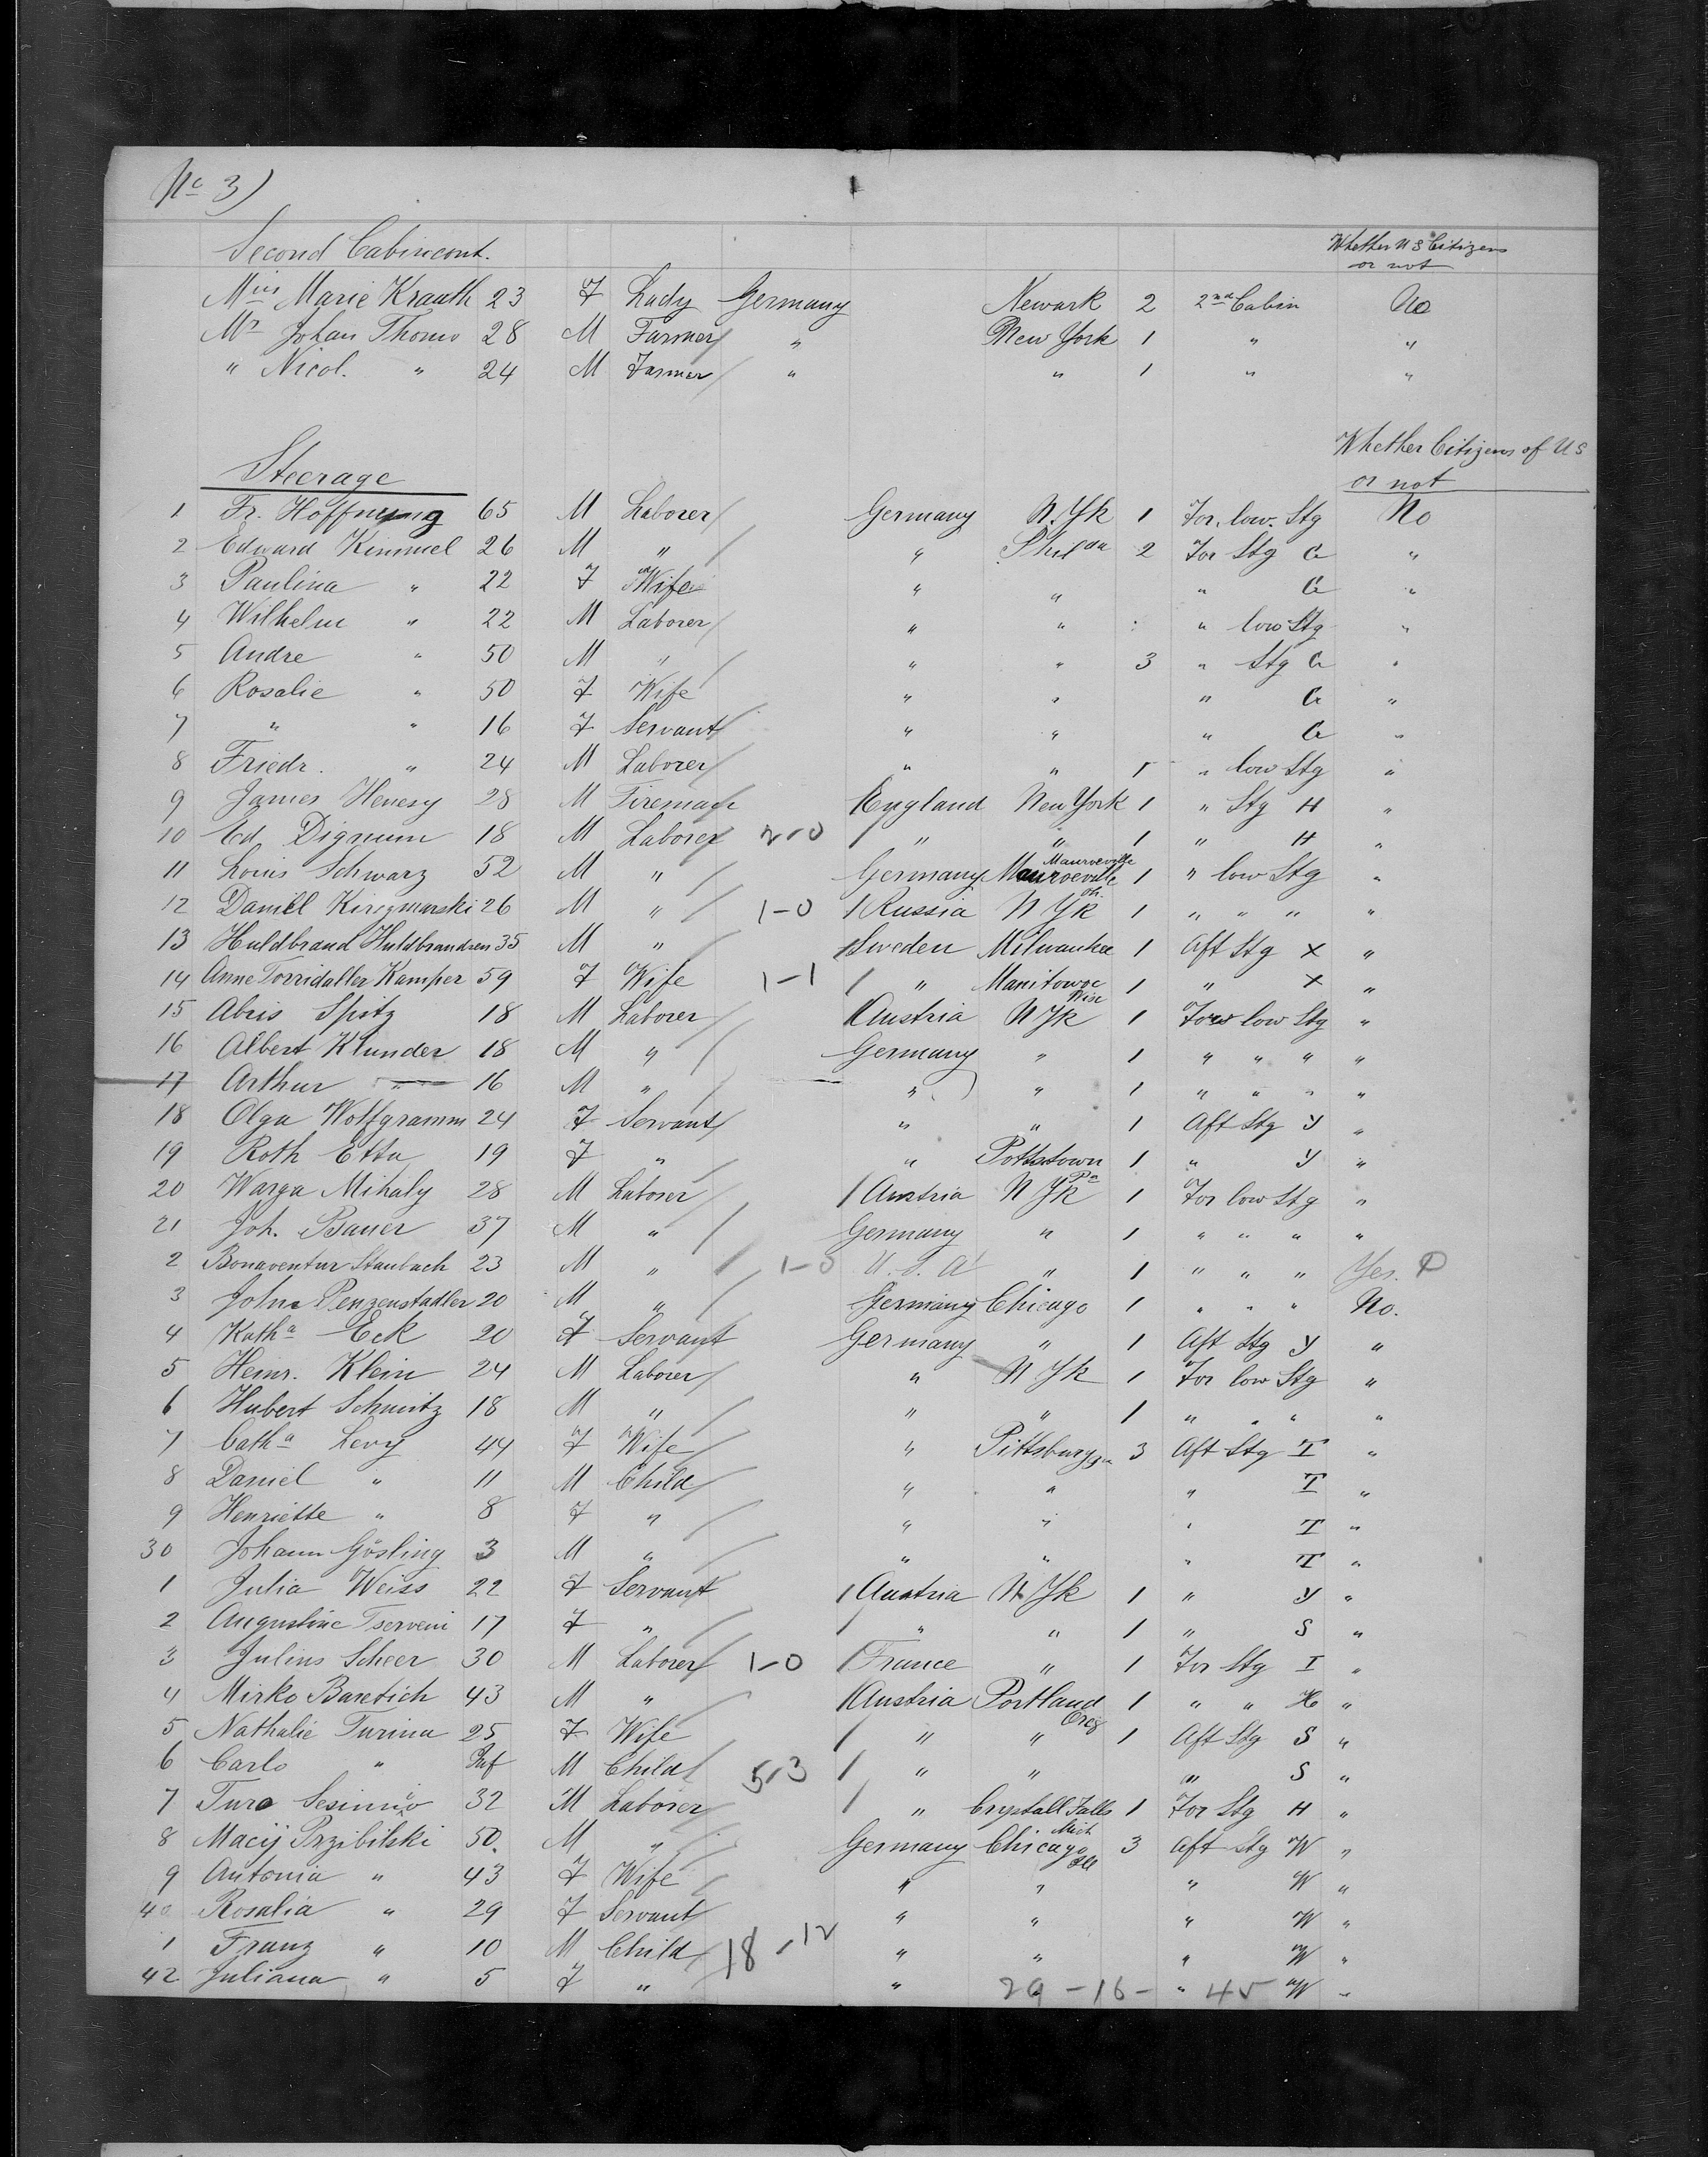 No 3)
Second Cabin cont. Whether U S Citizens
or not
Miss Marie Krauth 23 F Lady Germany Newark 2 2nd Cabin No
Mr Johan Thoms 28 M Farmer " New York 1 " "
" Nicol. " 24 M Farmer " " 1 " "
Whether Citizens of U S
Steerage or not
1 Fr. Hoffnung 65 M Laborer Germany N. Yk 1 For. low. Stg No
2 Edward Kimmel 26 M " " Philda 2 For Stg G "
3 Paulina " 22 F Wife " " " G "
4 Wilhelm " 22 M Laborer " " " low Stg "
5 Andre " 50 M " " " 3 " Stg G "
6 Rosalie " 50 F Wife " " " G "
7 " " 16 F Servant " " " G "
8 Friedr. " 24 M Laborer " " 1 " low Stg "
9 James Henesy 28 M Fireman England New York 1 " Stg H "
10 Ed Dignum 18 M Laborer 2-0 / " " 1 " H "
11 Louis Schwarz 52 M " Germany Mauroeville Mauroeville oh. 1 " low Stg "
12 Daniel 26 M " 1-0 / Russia N Yk 1 " " " "
13 Huldbrand Huldbrandsen 35 M " / Sweden Milwaukee 1 Aft Stg X "
14 Anne Torridaller Kamper 59 F Wife 1-1 / " Manitowoc Wisc 1 " X "
15 Abris Spitz 18 M Laborer / Austria N Yk 1 For low Stg "
16 Albert Klunder 18 M " Germany " 1 " " " "
17 Arthur " 16 M " " " 1 " " " "
18 Olga Wolfgramm 24 F Servant " " 1 Aft Stg Y "
19 Roth Etta 19 F " " Pottstown Pa 1 " Y "
20 Warga Mihaly 28 M Laborer / Austria N Yk 1 For low Stg "
21 Joh. Bauer 37 M " Germany " 1 " " " "
2 Bonaventur Staubach 23 M " 1-0 U. S. A " 1 " " " Yes.
3 John Penzenstadler 20 M " Germany Chicago 1 " " " No.
4 Katha Eck 20 F Servant Germany " 1 Aft Stg Y "
5 Heinr. Klein 24 M Laborer " N Yk 1 For low Stg "
6 Hubert Schmitz 18 M " " " 1 " " " "
7 Catha Levy 44 F Wife " Pittsburg 3 Aft Stg T "
8 Daniel " 11 M Child " " " T "
9 Henriette " 8 F " " " " T "
30 Johann Gösling 3 M " " " " T "
1 Julia Weiss 22 F Servant / Austria N. Yk 1 " Y "
2 Augustine Tserveni 17 F " / " " 1 " S "
3 Julius Scheer 30 M Laborer 1-0 / France " 1 For Stg I "
4 Mirko Baretich 43 M " / Austria Portland Oreg 1 " " H "
5 Nathalie Turina 25 F Wife / " " 1 Aft Stg S "
6 Carlo " Inf M Child 5-3 / " " " S "
7 Turo 32 M Laborer / " Crystall Falls Mich 1 For Stg H "
8 Macij Przibilski 50. M " Germany Chicago Ills 3 Aft Stg W "
9 Antonia " 43 F Wife " " " W "
40 Rosalia " 29 F Servant " " " W "
1 Franz " 10 M Child 18-12 " " " W "
42 Juliana " 5 F " " 29-16- " 45 W "